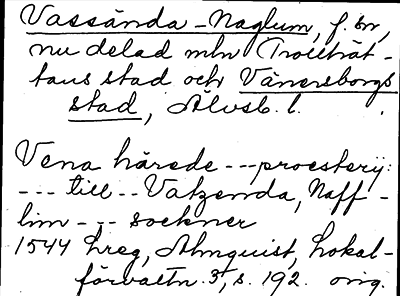 Vassända-Naglum, f. sn,
nu delad mln Trollhät-
tans stad och Vänersborgs
stad, Älvsb. l.
Vena härede --- proesterij:
--- till -- Vatzenda, Naff-
lim --- sockner
1544 Lreg, Almquist, Lokal-
förvaltn. 3, s. 192. orig.